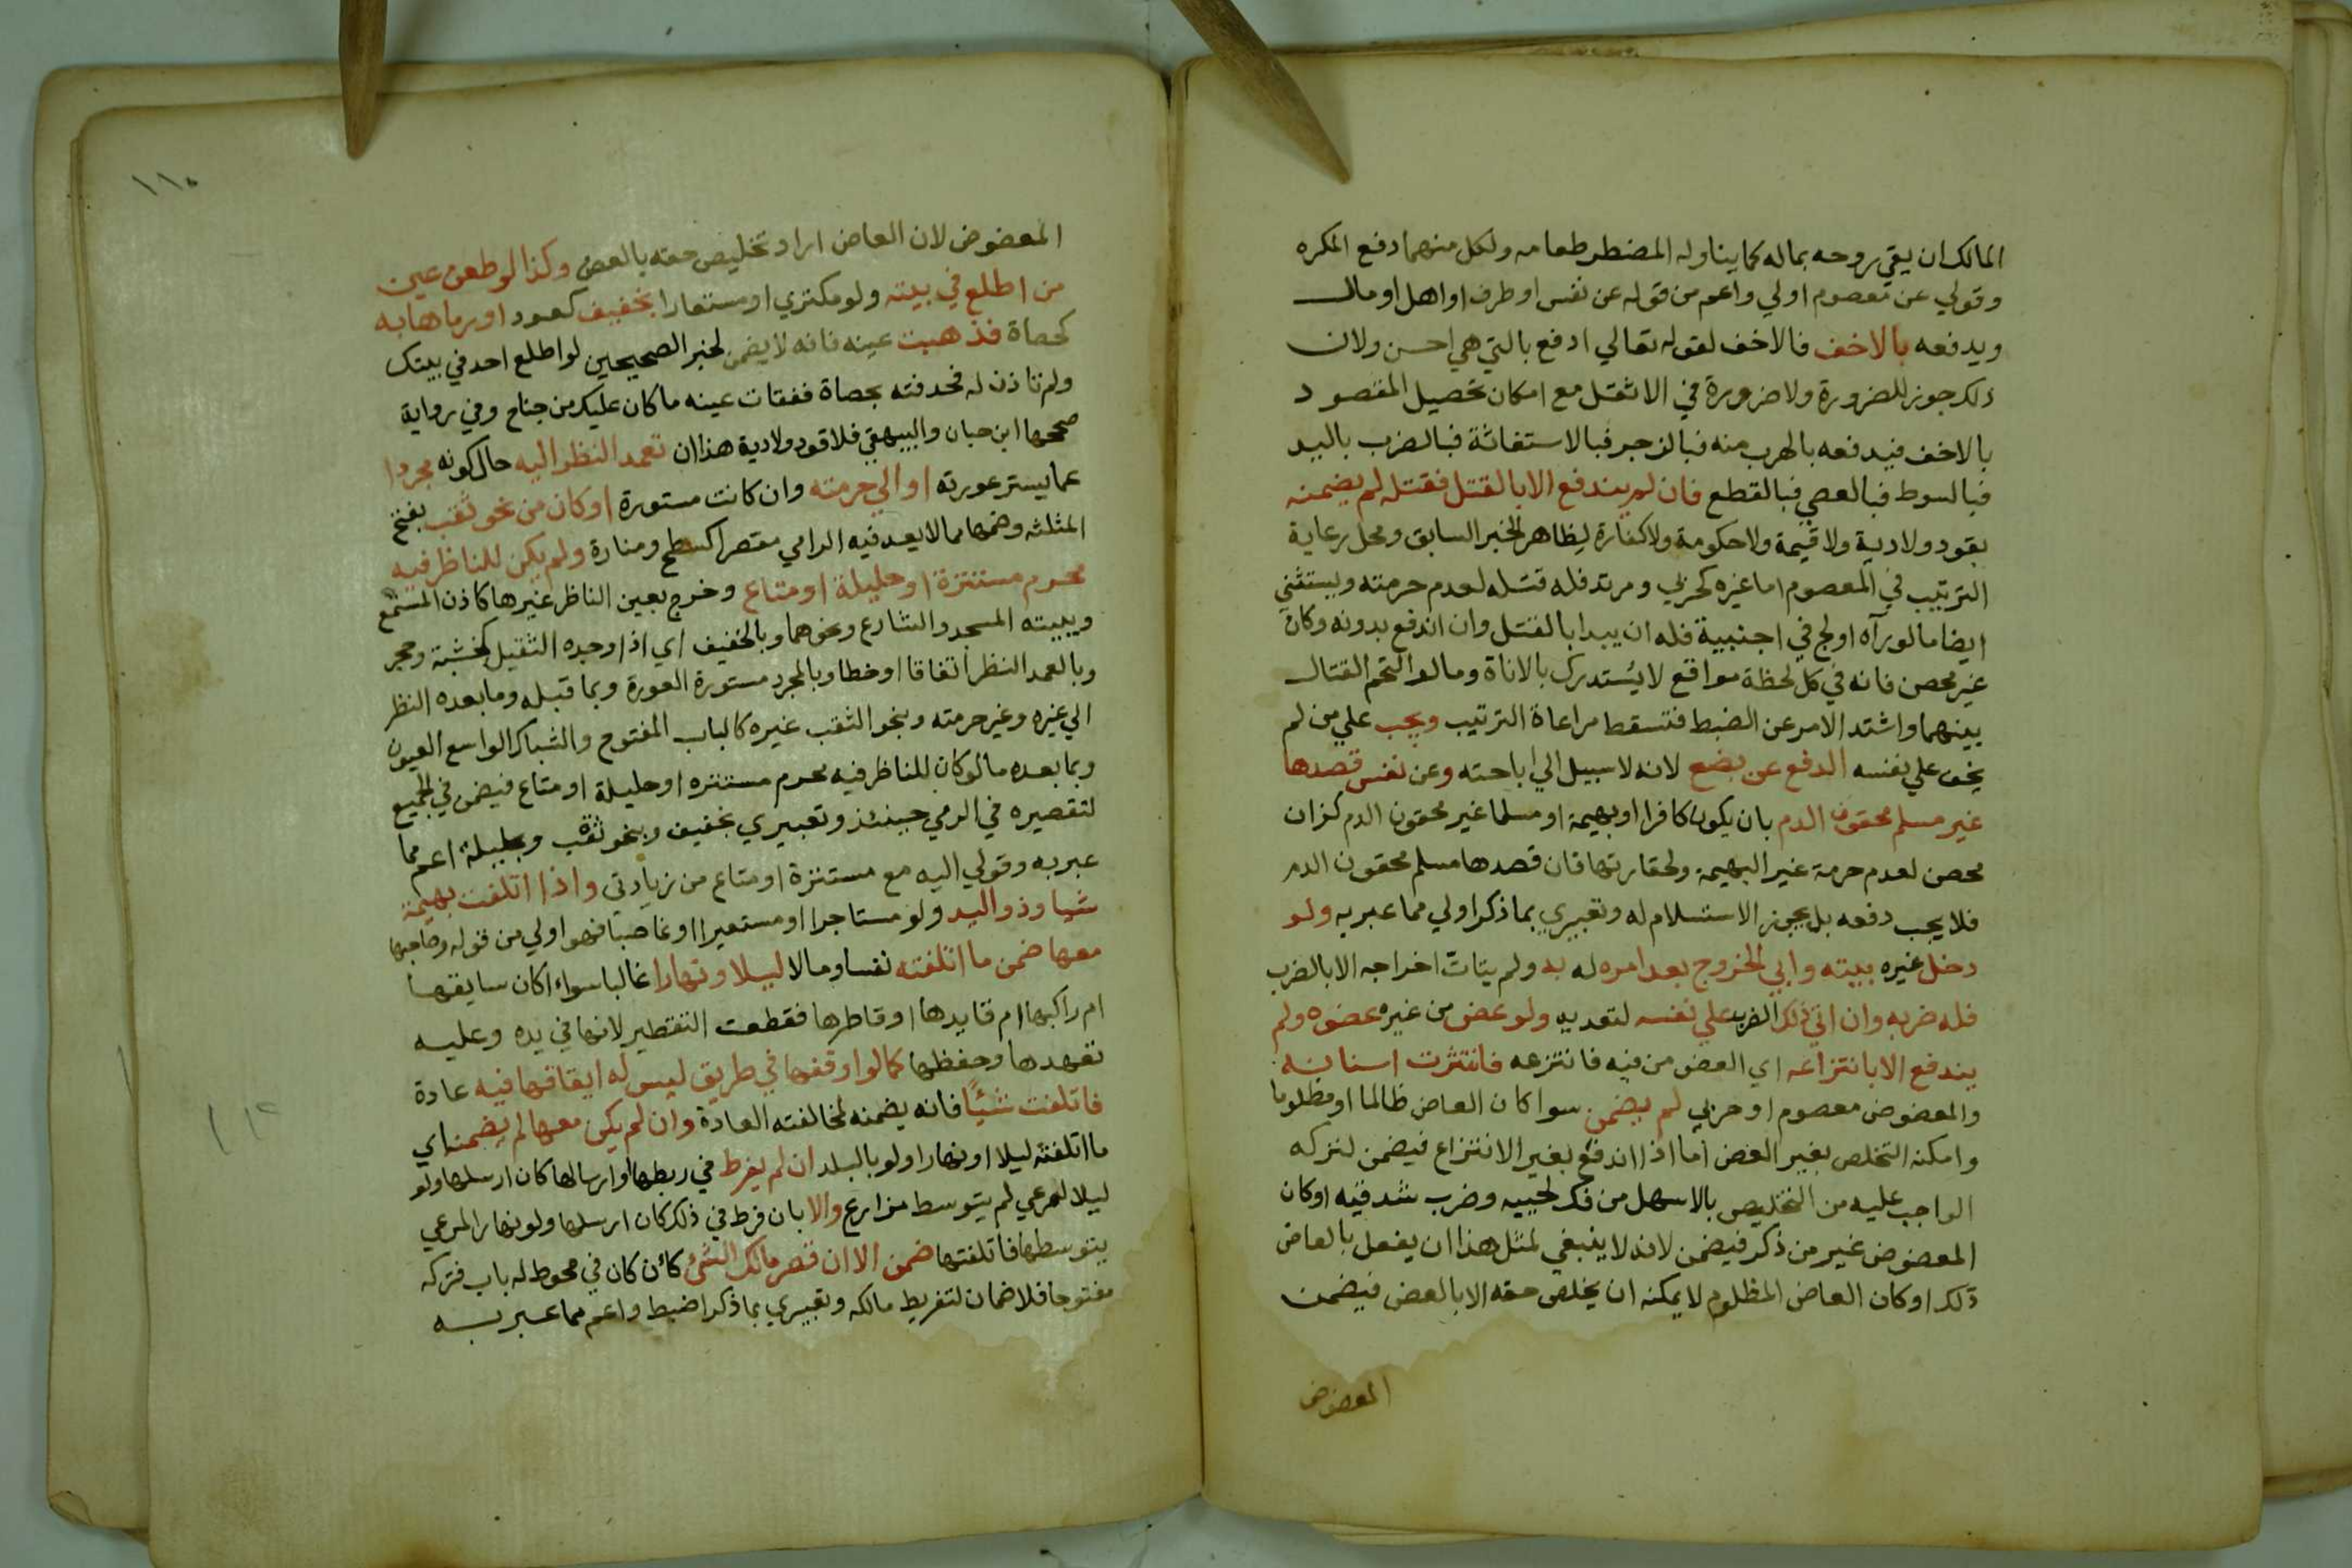 المالك ان يقي روحه بماله كما يناوله المضطر طعامه ولكل منهما دفع المكره
وقولي عن معصوم اولي واعم من قوله عن نفس او طرف او اهل او مال
ويدفعه بالاخف فالاخف لقوله تعالي ادفع بالتي هي احسن ولان
ذلك جوز للضرورة ولا ضرورة في الاثقل مع امكان تحصيل المقصود
بالاخف فيدفعه بالهرب منه فبالزجر فبالاستغاثة فبالضرب باليد
فبالسوط فبالعصي فبالقطع فان لم يندفع الا بالقتل فقتله لم يضمنه
بقود ولا دية ولا قيمة ولا حكومة ولا كفارة لظاهر الخبر السابق ومحل رعاية
الترتيب في المعصوم اما غيره كحربي ومرتد فله قتله لعدم حرمته ويستثني
ايضا ما لو رآه اولج في اجنبية فله ان يبدا بالقتل وان اندفع بدونه وكان
غير محصن فانه في كل لحظة مواقع لا يُستدرك بالاناة وما لو التحم القتال
بينهما واشتد الامر عن الضبط فتسقط مراعاة الترتيب ويجب علي من لم
يخف علي نفسه الدفع عن بضع لانه لا سبيل الي اباحته وعن نفس قصدها
غير مسلم محقون الدم بان يكون كافرا او بهيمة او مسلما غير محقون الدم كزان
محصن لعدم حرمة غير البهيمة ولحقارتها فان قصدها مسلم محقون الدم
فلا يجب دفعه بل يجوز الاستسلام له وتعبيري بما ذكر اولي مما عبر به ولو
دخل غيره بيته وابي الخروج بعد امره له به ولم يتات اخراجه الا بالضرب
فله ضربه وان اتي ذلك الضرب علي نفسه لتعديه ولو عض من غيره عضوه ولم
يندفع الا بانتزاعه اي العض من فيه فانتزعه فانتثرت اسنانه
والمعضوض معصوم او حربي لم يضمن سوا كان العاض ظالما او مظلوما
وامكنه التخلص بغير العض اما اذا اندفع بغير الانتزاع فيضمن لتركه
الواجب عليه من التخليص بالاسهل من فك لحييه وضرب شدقيه او كان
المعضوض غير من ذكر فيضمن لانه لا ينبغي لمثل هذا ان يفعل بالعاض
ذلك او كان العاض المظلوم لا يمكنه ان يخلص حقه الا بالعض فيضمن
المعضوض
١١٠
المعضوض لان العاض اراد تخليص حقه بالعض وكذا لو طعن عين
من اطلع في بيته ولو مكتري او مستعارا بخفيف كعود او رماها به
كحصاة فذهبت عينه فانه لا يضمن لخبر الصحيحين لو اطلع احد في بيتك
ولم تاذن له فحدفته بحصاة ففقات عينه ما كان عليك من جناح وفي رواية
صححها ابن حبان والبيهقي فلا قود ولا دية هذا ان تعمد النظر اليه حال كونه مجردا
عما يستر عورته او الي حرمته وان كانت مستورة او كان من نحو ثقب بفتح
المثلثه وضمها مما لا يعد فيه الرامي مقصرا كسطح ومنارة ولم يكن للناظر فيه
محرم مستترة او حليلة او متاع وخرج بعين الناظر غيرها كاذن المستمع
وببيته المسجد والشارع ونحوهما وبالخفيف اي اذا وجده الثقيل كخشبة وحجر
وبالعمد النظر اتفاقا او خطا وبالمجرد مستورة العورة وبما قبله وما بعده النظر
الي غيره وغير حرمته وبنحو الثقب غيره كالباب المفتوح والشباك الواسع العيون
وبما بعده ما لو كان للناظر فيه محرم مستتره او حليلة او متاع فيضمن في الجميع
لتقصيره في الرمي حينئذ وتعبيري بخفيف وبنحو ثقب وبحليلة اعم مما
عبر به وقولي اليه مع مستترة او متاع من زيادتي واذا اتلفت بهيمة
شيا وذو اليد ولو مستاجرا او مستعيرا او غاصبا فهو اولي من قوله وصاحبها
معها ضمن ما اتلفته نفسا ومالا ليلا ونهارا غالبا سواء اكان سايقها
ام راكبها ام قايدها او قاطرها فقطعت التقطير لانها في يده وعليه
تعهدها وحفظها كما لو اوقفها في طريق ليس له ايقافها فيه عادة
فاتلفت شيًا فانه يضمنه لمخالفته العادة وان لم يكن معها لم يضمن اي
ما اتلفته ليلا او نهارا ولو بالبلد ان لم يفرط في ربطها او ارسالها كان ارسلها ولو
ليلا لمرعي لم يتوسط مزارع والا بان فرط في ذلك كان ارسلها ولو نهارا لمرعي
يتوسطها فاتلفتها ضمن الا ان قصر مالك الشئ كأن كان في محوط له باب فتركه
مفتوحا فلا ضمان لتفريط مالكه وتعبيري بما ذكر اضبط واعم مما عبر به